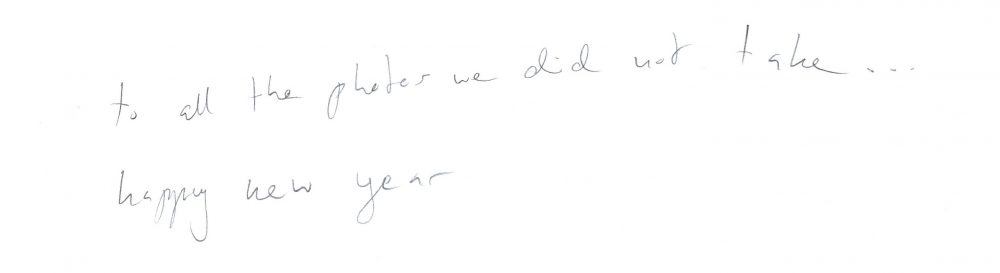 to all the photos we did not take...
happy new year